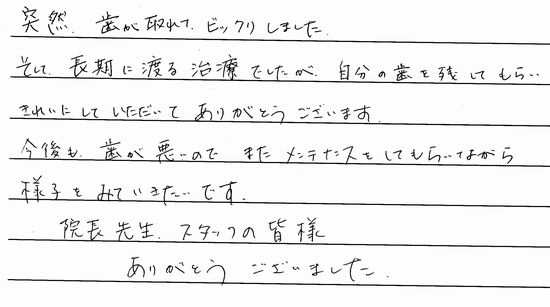 突然、歯が取れて、ビックリしました。
そして、長期に渡る治療でしたが、自分の歯を残してもらい
きれいにしていただいてありがとうございます。
今後も、歯が悪いので またメンテナンスをしてもらいながら
様子をみていきたいです。
院長先生、スタッフの皆様
ありがとう ございました。